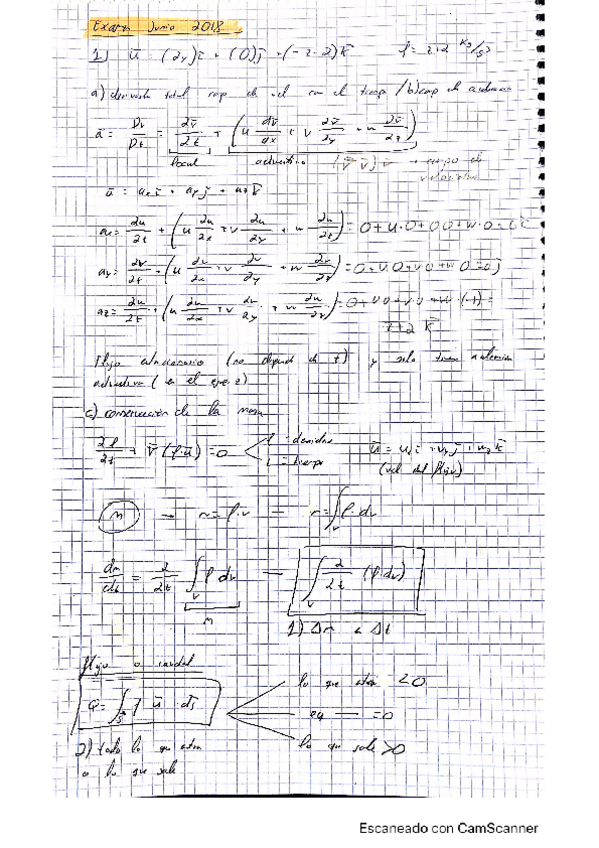 Examen Junio 2018
1) ū = (2y)ī + (0)j̄ + (-z-2)k̄ ρ = 2+2 kg/s³
a) derivada total campo de vel con el tiempo / b) campo de aceleraciones
ā = Dv̄/Dt = ∂v̄/∂t + (u ∂v̄/∂x + v ∂v̄/∂y + w ∂v̄/∂z)
local advectiva (v̄ ∇)v̄ → campo de velocidades
ā = ax ī + ay j̄ + az k̄
ax = ∂u/∂t + (u ∂u/∂x + v ∂u/∂y + w ∂u/∂z) = 0 + u·0 + + w·0 = ī
ay = ∂v/∂t + (u ∂v/∂x + v ∂v/∂y + w ∂v/∂z) = 0 + u·0 + v·0 + w·0 = 0j̄
az = ∂u/∂t + (u ∂u/∂x + v ∂v/∂y + w ∂u/∂z) = 0 + u·0 + v·0 + w·(-1) =
z+2 k̄
Flujo estacionario (no depende de t) y solo tiene aceleración
advectiva (en el eje z)
c) conservación de la masa
∂ρ/∂t + ∇̄(ρ·ū) = 0 ρ = densidad ū = ux ī + uy j̄ + uz k̄
t = tiempo (vel del flujo)
m → m = ρ·v m = ∫v ρ·dv
dm/dt = ∂/∂t ∫v ρ·dv = ∫v ∂/∂t (ρ·dv)
m
1) Δm c Δt
flujo o caudal
lo que entra <0
Q = ∫s ρ ū · ds̄ eq = 0
lo que sale >0
2) todo lo que entra
o lo que sale
Escaneado con CamScanner